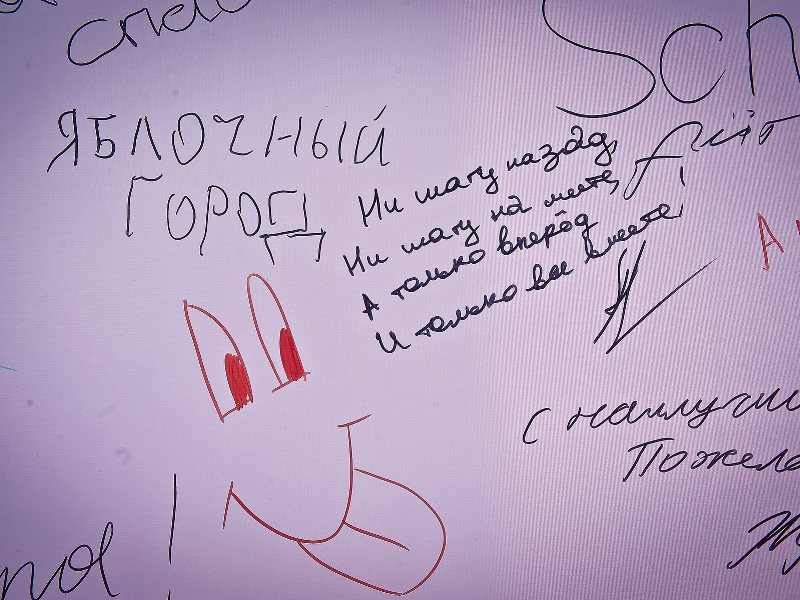 спас
Sch
ЯБЛОЧНЫЙ
ГОРОД
Ни шагу назад,
Ни шагу на месте,
А только вперёд
И только вы вместе!
А
с наилучши
Пожела